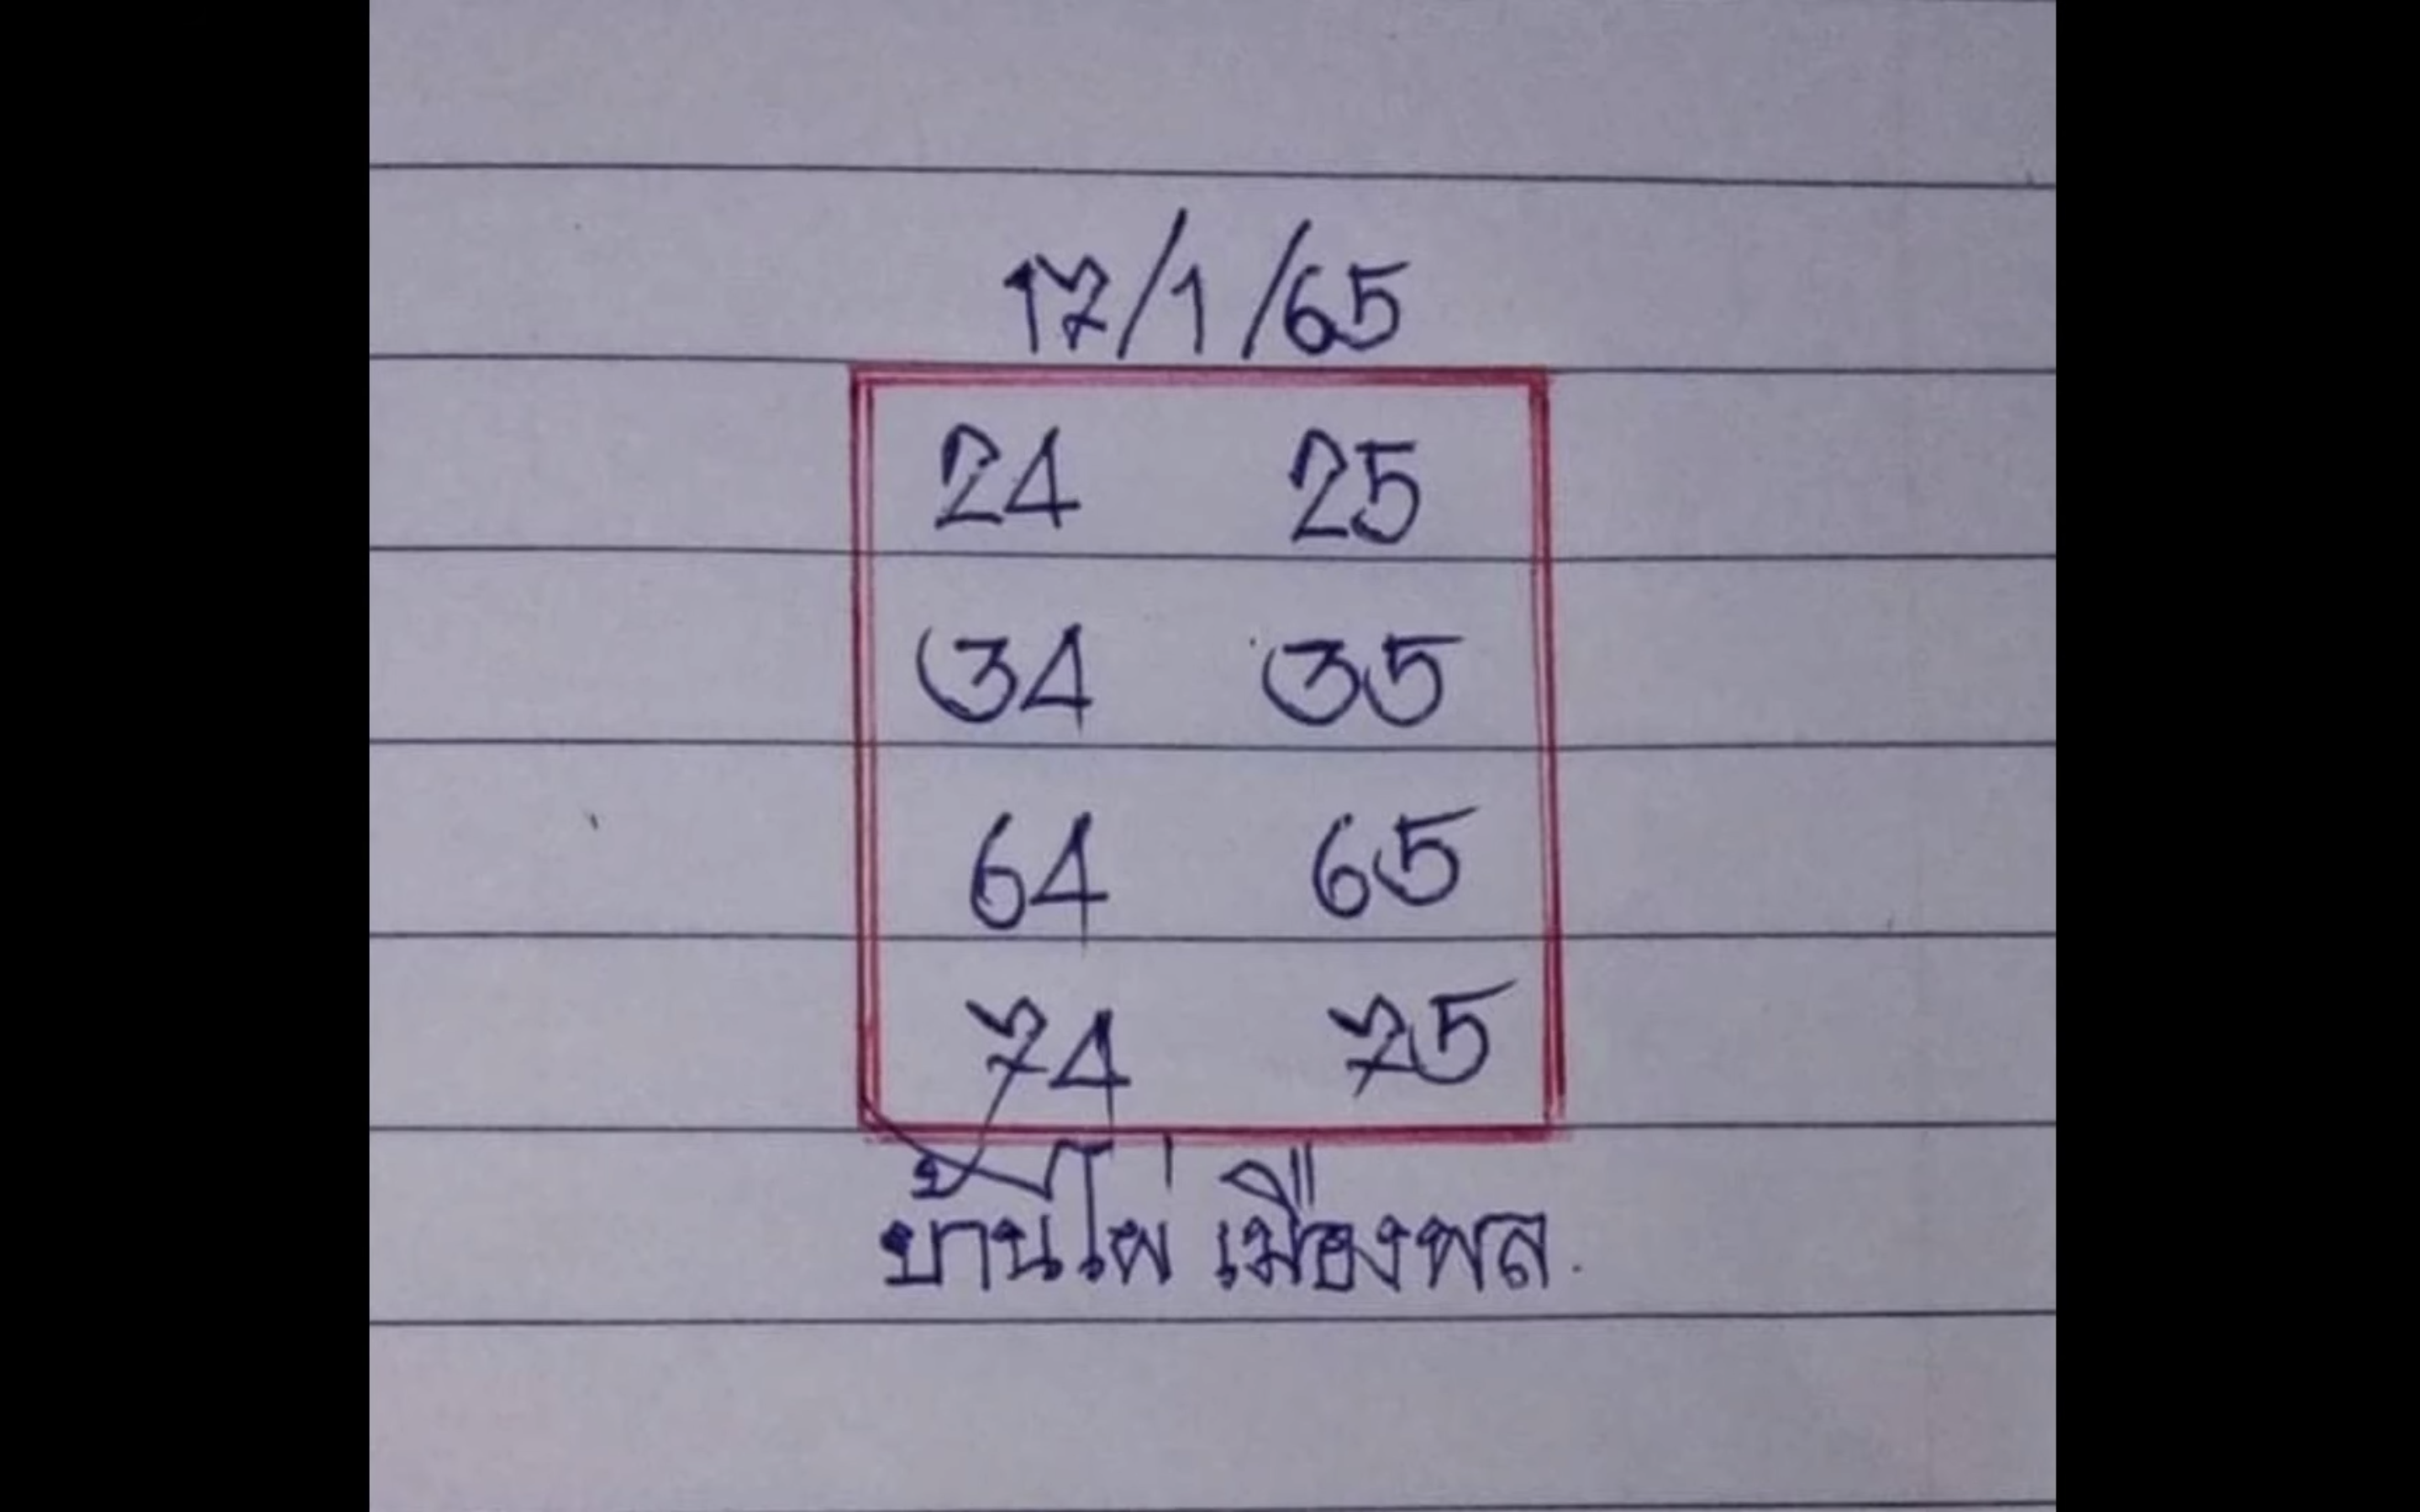 17/1/65
24 25
34 35
64 65
74 75
บ้านไผ่ เมืองพล.